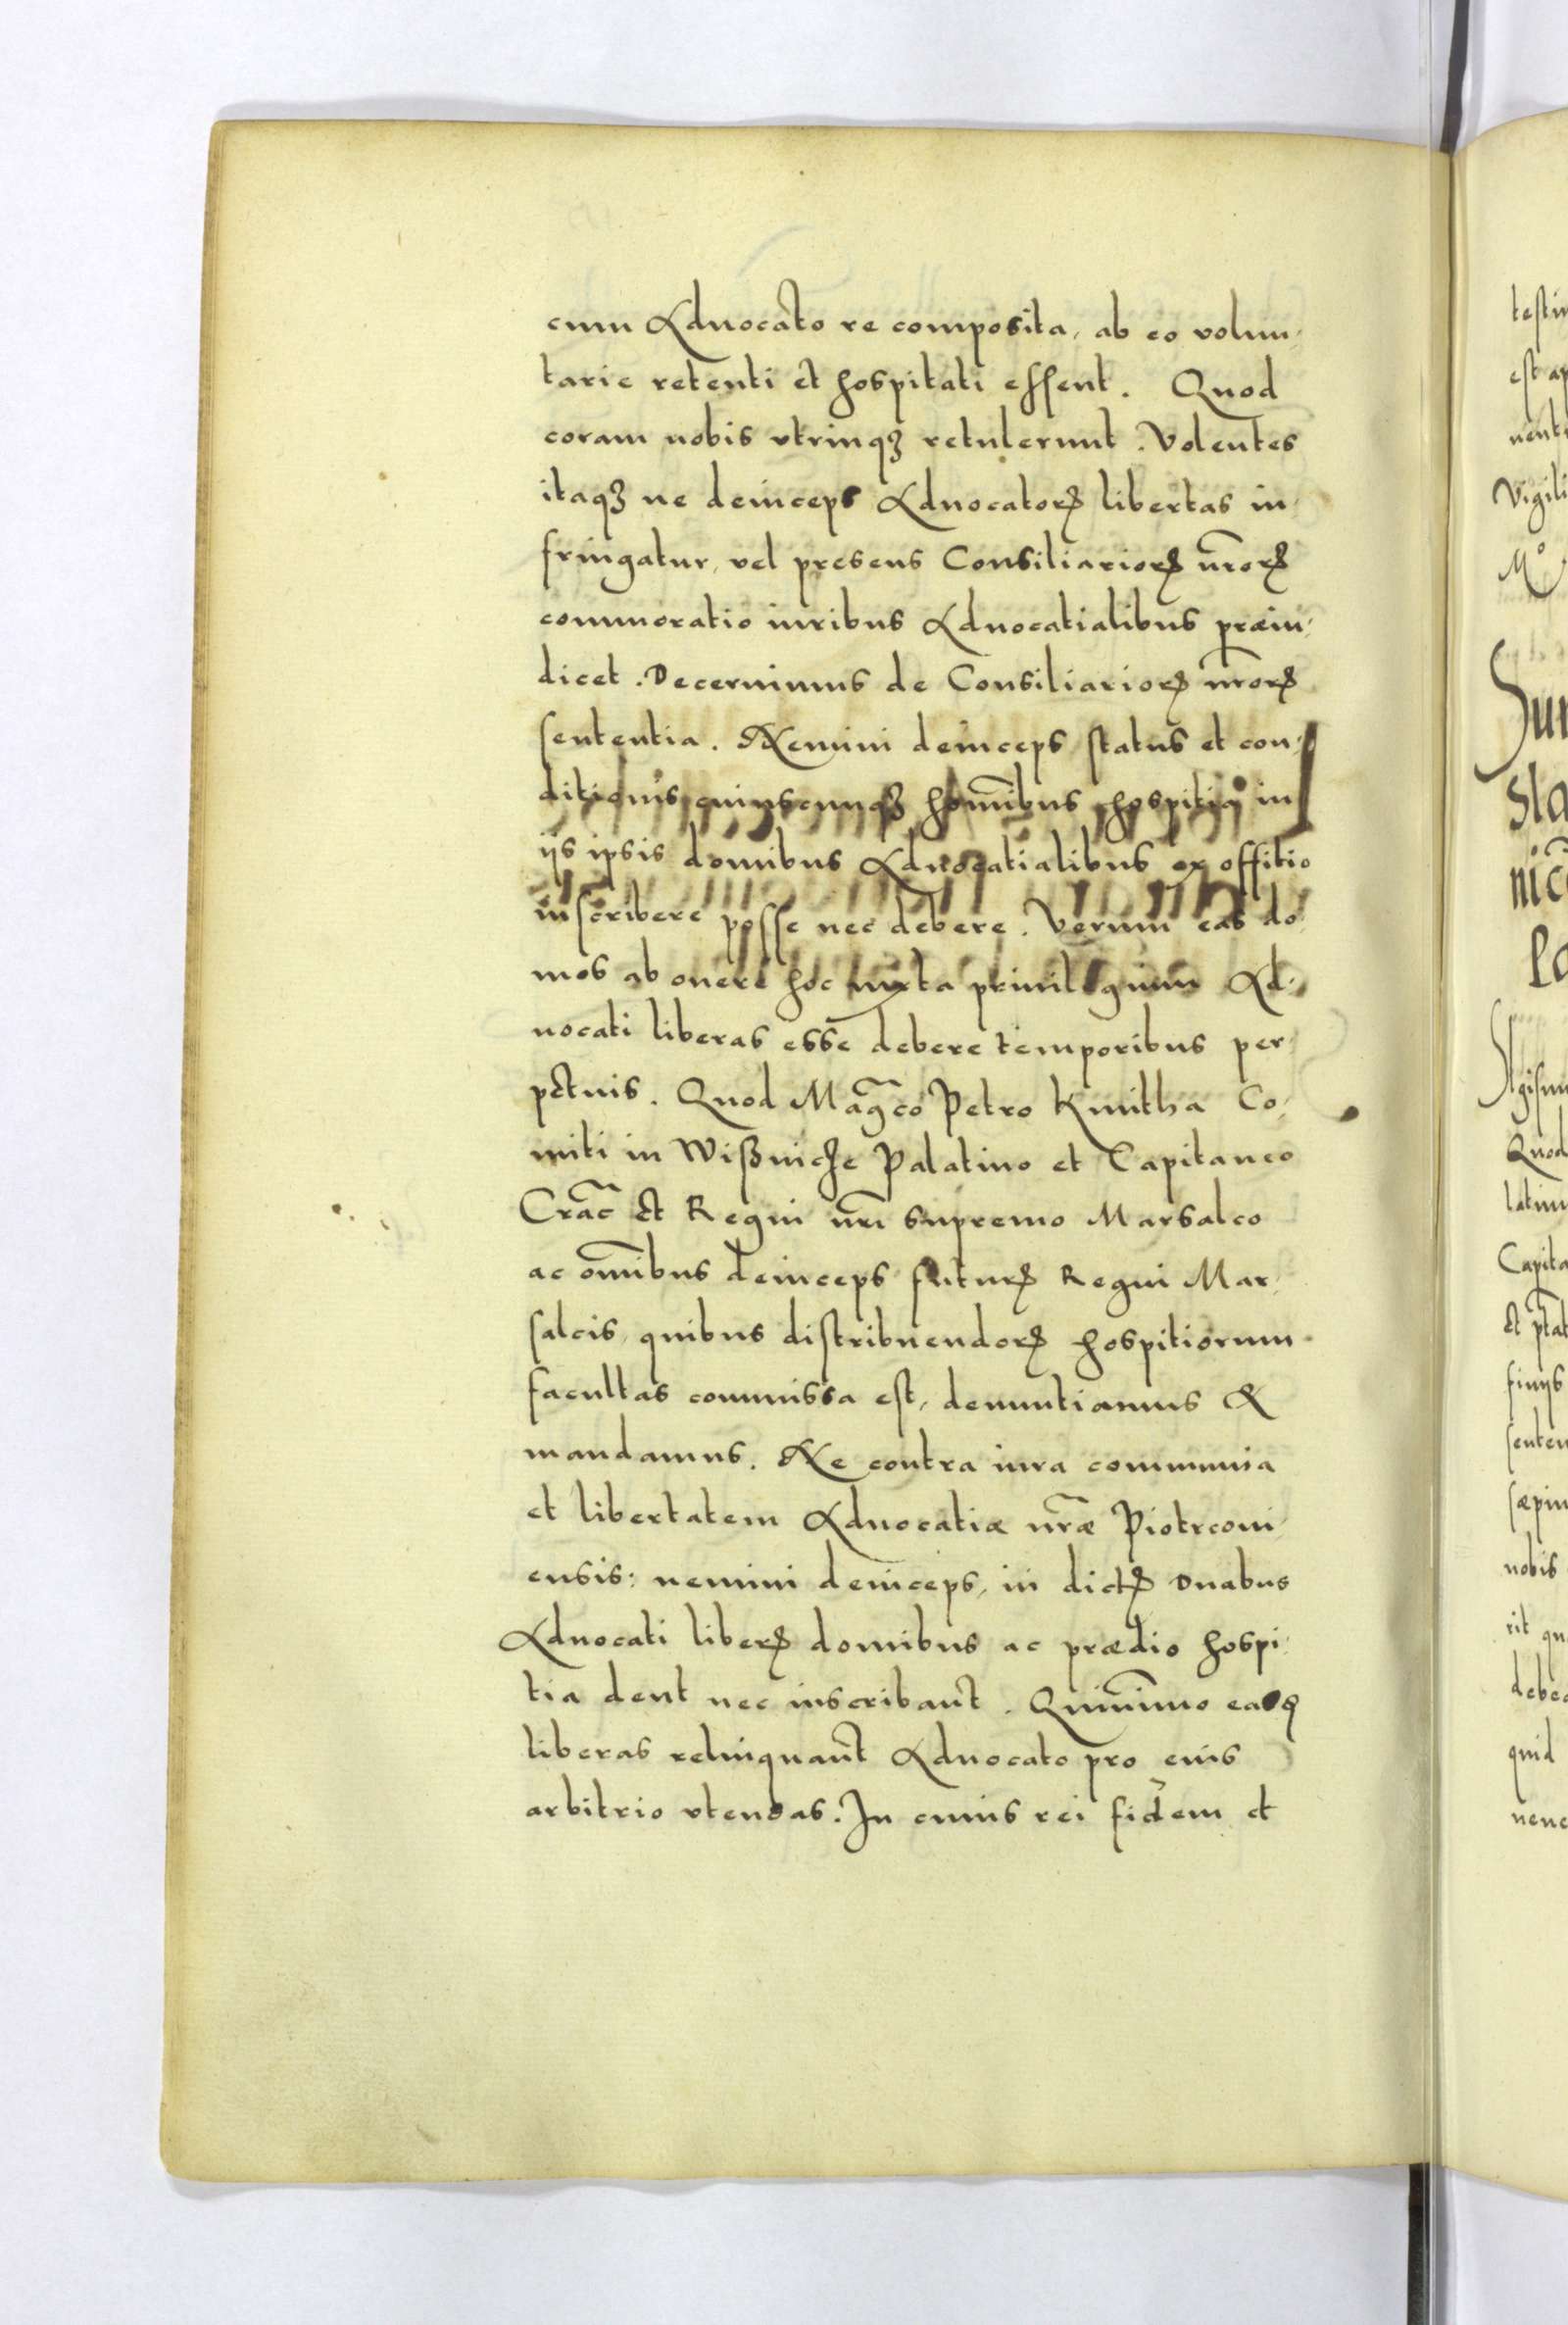 cum Aduocato re composita, ab eo volun-
tarie retenti et hospitati essent. Quod
coram nobis vtrinqꝫ retulerunt. Volentes
itaqꝫ ne deinceps Aduocatorꝝ libertas in-
fringatur, vel presens Consiliariorꝝ nr̃orꝝ
commoratio iuribus Aduocatialibus præiu-
dicet. Decernimus de Consiliariorꝝ nr̃orꝝ
sententia. Nemini deinceps status et con-
ditionis cuiuscunqꝫ hom̃ibus hospitia in
ijs ipsis domibus Aduocatialibus ex offitio
inscribere posse nec debere. Verum eas do-
mos ab onere hoc iuxta priuilegium Ad-
uocati liberas esse debere temporibus per-
petuis. Quod Mag̃co Petro Kmitha Co-
miti in Wißnicze Palatino et Capitaneo
Crac̃ et Regni nr̃i supremo Marsalco
ac om̃ibus deinceps futurꝝ Regni Mar-
salcis, quibus distribuendorꝝ hospitiorum
facultas commissa est, denuntiamus &
mandamus. Ne contra iura communia
et libertatem Aduocatiæ nr̃æ Piotrcoui-
ensis: nemini deinceps, in dictꝝ duabus
Aduocati liberꝝ domibus ac prædio hospi-
tia dent nec inscribant. Quinimmo easqꝫ
liberas relinquant Aduocato pro eius
arbitrio vtendas. In cuius rei fidem et
testim
est ap
Vigili
Mº
Sla
Quod
latin
Capita
finijs
senten
sæpiu
nobis
rit qu
debea
quid